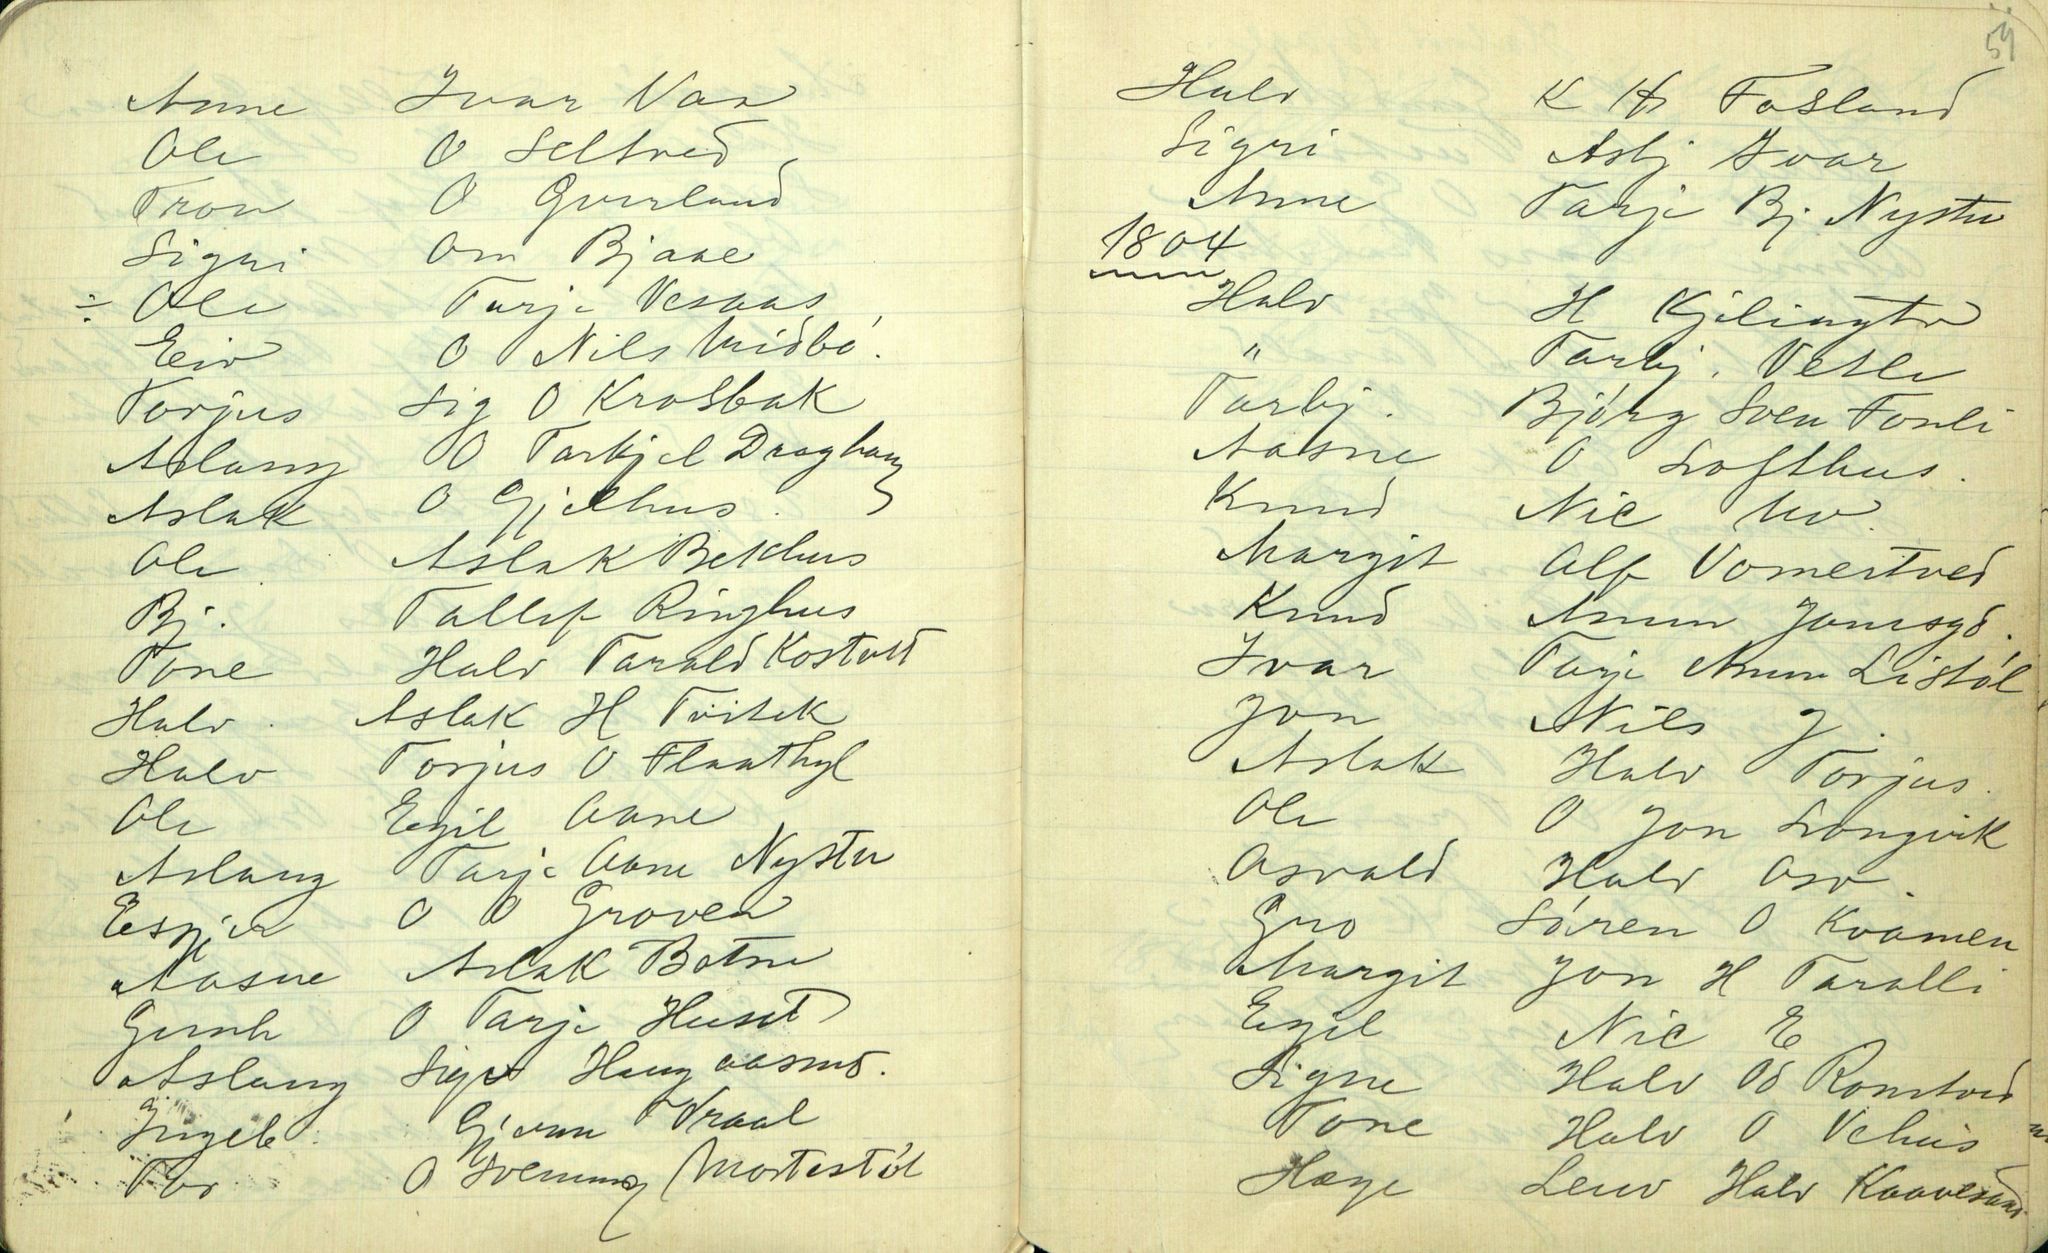 Anne Ivar Vaa
Ole O Seltved
Tron O Guvland
Sigri Om Bjaae
÷ Ole Tarje Vesaas
Eiv O Nils Midbö.
Torjus Sig O Krosbak
Aslaug O Tarkjel Draghaug
Aslak O Gjelhus.
Ole Aslak Bekhus
Bj. Tallef Ringhus
Tone Halv Tarald Kostvett
Halv. Aslak H Tvitek
Halv Torjus O Flaathyl
Ole Egil Aane
Aslaug Tarje Aane Nystu
Espjer O O Groven
Aasne Aslak Botne
Gunh O Tarje Huset
Aslaug Haugaasmo.
Ingeb. Gjerm Vraal
Tor O Svenung Mortestöl
59
Halv K H Fosland
Sigri Asbj Ivar
Anne Tarje Bj. Nystu
1804
Halv H Kjilingtv
" Tarbj. Vetle
Tarbj. Björg Sven Fonli
Aasne O Lofthus.
Knud Nic Mo
Margit Alf Vomertved
Knud Anun Jonsgd.
Ivar Tarje Anun Listöl
Jon Nils J.
Aslak Halv Torjus.
Ole O Jon Longvik
Osvald Halv Osv.
Gro Sören O Kvamen
Margit Jon H Taralli
Egil Nic E
Signe Halv Od Romtved
Tone Halv O Vehus
Hæge Leiv Halv Kaavesand